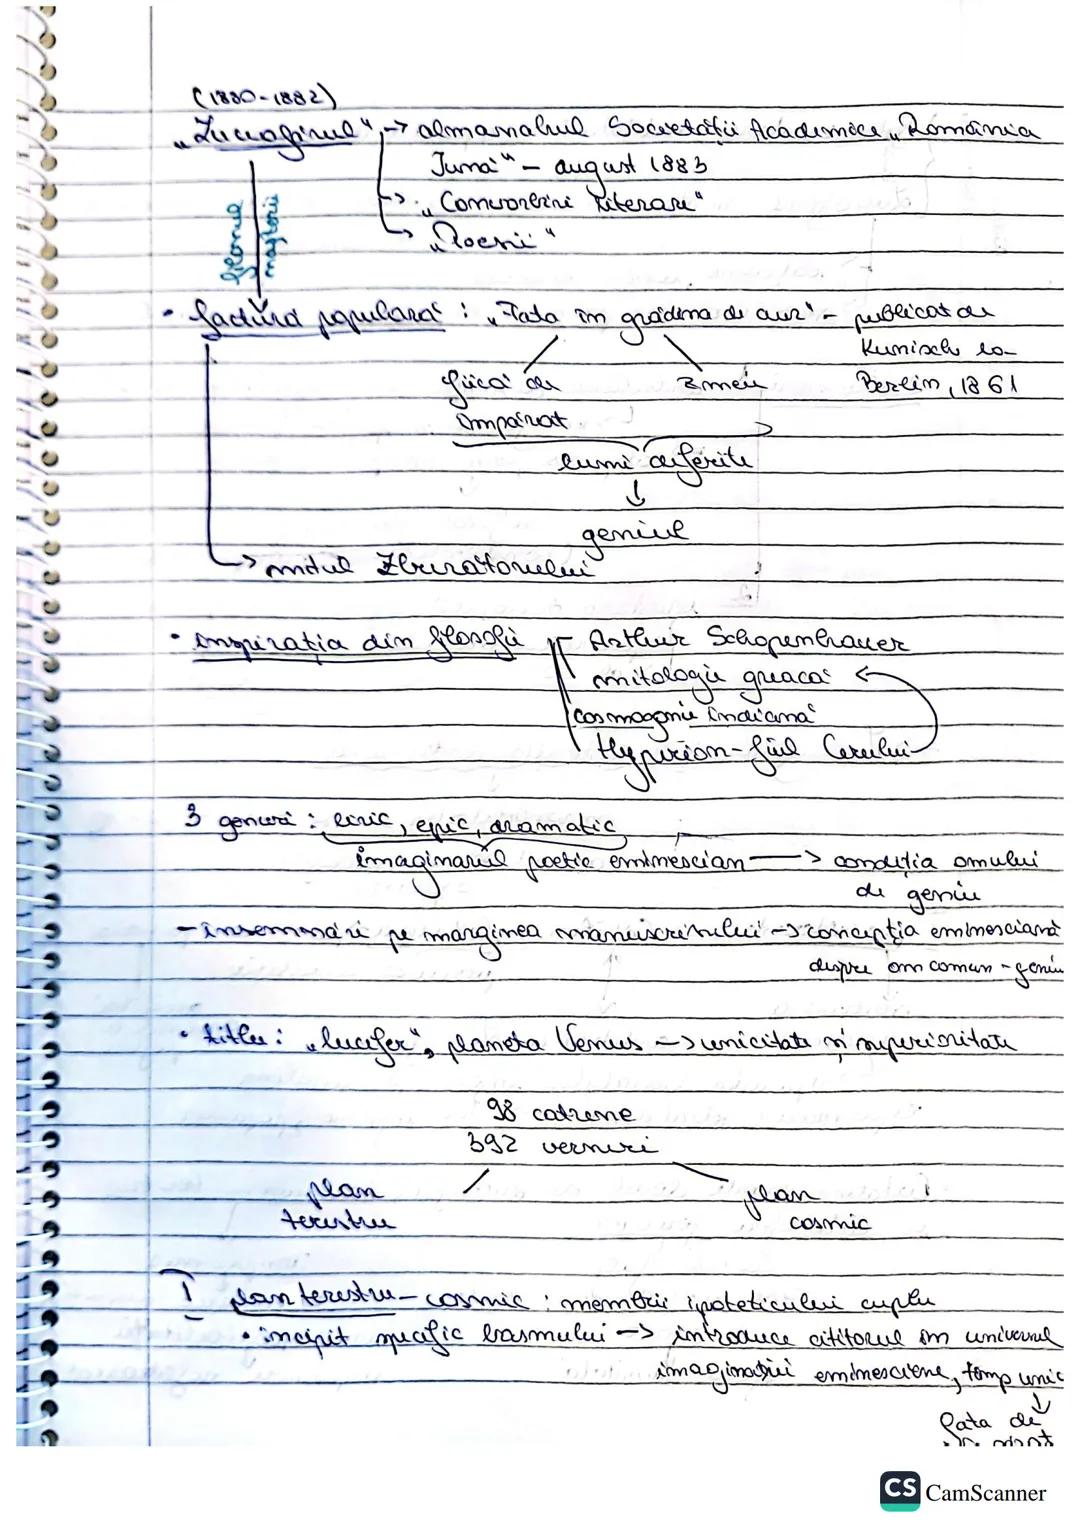 (1880-1882)
„Luceafărul" -> almanahul Societății Academice „România
Jună" - august 1883
-> „Convorbiri Literare"
-> „Poesii"
filonul
majorii
• factură populară : „Fata în grădina de aur" - publicat de
Kunisch la
fiică de zmeu Berlin, 1861
împărat
lumi diferite
↓
geniul
-> mitul Zburătorului
• inspirația din filosofi Arthur Schopenhauer
mitologie greacă
cosmogonie indiană
Hyperion-fiul Cerului
3 genuri : liric, epic, dramatic
imaginarul poetic eminescian -> condiția omului
de geniu
- însemnări pe marginea manuscrisului -> concepția eminesciană
despre om comun - geniu
• titlu : „lucifer", planeta Venus -> unicitate și superioritate
98 catrene
392 versuri
plan plan
terestru cosmic
I plan terestru - cosmic : membrii ipoteticului cuplu
• incipit specific basmului -> introduce cititorul în universul
imaginației eminesciene, timp unic
↓
fata de